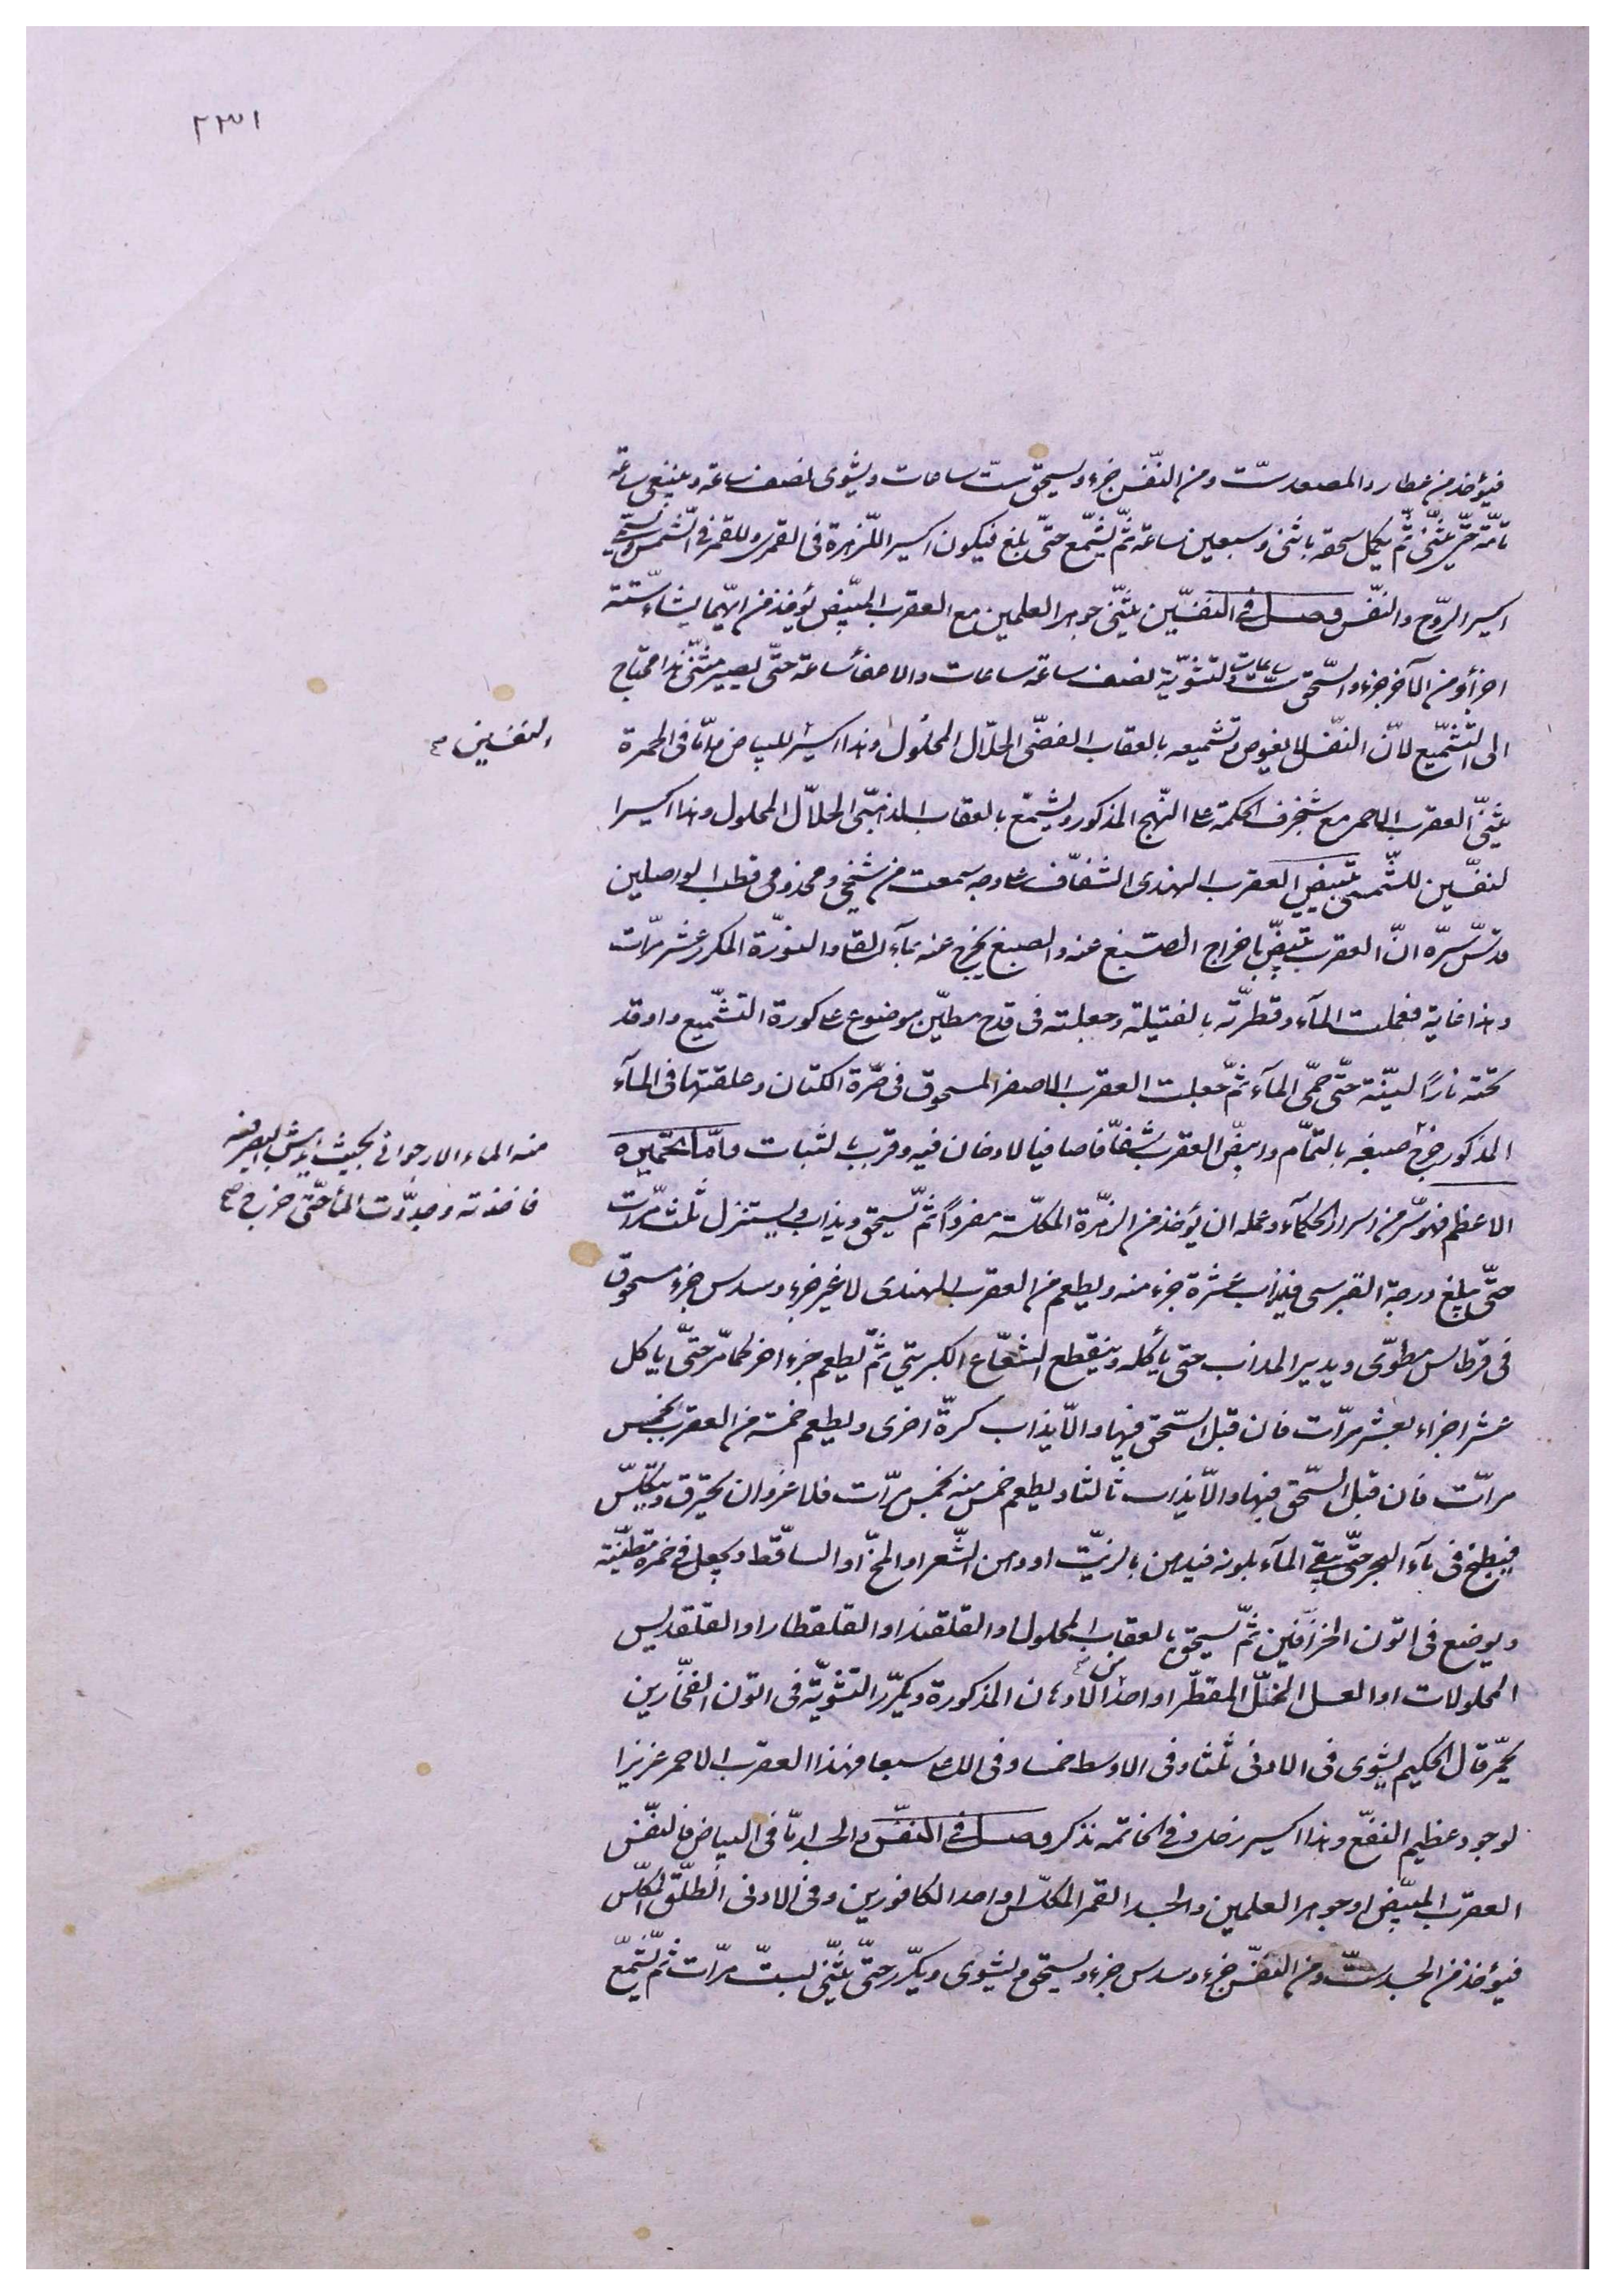 ٢٣١
فيؤخذ من عطارد المصعد ستّ ومن النّفس جزء ويسحق ستّ ساعات ويشوى نصف ساعة وينبغى ساعة
تامّة حتّى يثنّى ثمّ يكمل سحقه باثنى وسبعين ساعة ثمّ يشمّع حتّى بلغ فيكون اكسير اللزّهرة فى القمرى وللقمر فى الشّمسى
اكسير الرّوح والنّفس فصل فى النفسين يثنّى جوهر العلمين مع العقرب المبيّض يؤخذ من الايّما يشاء ستّة
اجزأ ومن الآخر جزء والسّحق ستّ ساعات والتّشويّة نصف ساعة ساعات والاصفأ ساعة حتّى يصير مثنّى هذا محتاج
الى التّشميع لانّ النفس لا يغوص وتشميعه بالعقاب الفضّى الحلّال المحلول وهذا اكسير للبياض وامّا فى الحمرة
والنفسين
يثنّى العقرب الاحمر مع شنجرف الحكمة على النّهج المذكور ويشمّع بالعقاب الذهبّى الحلاّل المحلول وهذا اكسيرا
لنفسّين للشّمسى تبييض العقرب الهندى الشفّاف على وجه سمعت من شيخى ومخدومى قطب الواصلين
قدّس سرّه انّ العقرب يبيضّ باخراج الصّبغ عنه والصبغ يخرج عنه بمآء القلى والنورّة المكرر عشر مرّات
وهذا غاية فعملت المآء وقطرّته بالفتيلة وجعلته فى قدح مطيّن موضوع على كورة التشّميع واوقد
تحته نارًا ليّنة حتّى حمّى المآء ثمّ جعلت العقرب الاصفر المسحوق فى صرّة الكتان وعلقتها فى المآء
المذكور خرج صبغه بالتّمام وابيضّ العقرب شفّافا صافيا لا دخان فيه وقرب بالثبات وامّا الخميره
منه الماء الارجوانى بحيث
فاخذته وجدّدت المأ حتّى خرج صح
الاعظم فهو سّر من اسرار الحكمآء وعمله ان يؤخذ من الزهّرة المكلّسة مفرداً ثمّ يسحق ويذاب ويستنزل ثلث مرّات
حتّى يبلغ درجة القبرسى فيذاب عشرة جزء منه ويطعم من العقرب الهندى لا غير جزء وسدس جزء مسحوق
فى قرطاس مطوّى ويدير المذاب حتى يأكله وينقطع الشعّاع الكبريتى ثمّ يطعم جزء اخر كما مرّ حتّى ياكل
عشر اجزاء بعشر مرّات فان قبل السّحق فبها والاّ يذاب كرّة اخرى ويطعم خمسة من العقرب بخمس
مرات فان قبل السّحق فبها والاّ يذاب ثالثا ويطعم خمس منه بخمس مرّات فلا غرو ان يحترق ويكلّس
فيطبخ فى مآء البحر حتّى يبقى المآء بلونه فيدهن بالزيّت او دهن الشّعر او المخّ او الساقّط ويجعل فى خمرة مطيّنة
ويوضع فى اتون الخزّافين ثمّ يسحق بالعقاب المحلول او القلقند او القلقطار او القلقديس
المحلولات او العسل المخلّل المقطّر او احد من الادهان المذكورة ويكرّر التشّويّة فى اتون الفخّارين
يحمّر قال الحكيم يشوى فى الادنى ثلثا وفى الاوسط خمسا وفى الاعلى سبعا فهذا العقرب الاحمر عزيز ا
لوجود عظيم النفّع وهذا اكسير زحل وفى الخاتمه نذكر فصل فى النفسّ والجسد امّا فى البياض فالنفّس
العقرّب المبيّض او جوهر العلمين والجسد القمر المكلّس او احد الكافورين وفى الادنى الطلّق المكلّس
فيؤخذ من الجسد ستّ ومن النفسّ جزء وسدس جزء ويسحق ويشوى ويكرّر حتّى يثنّى لستّ مرّات ثمّ يشمّع